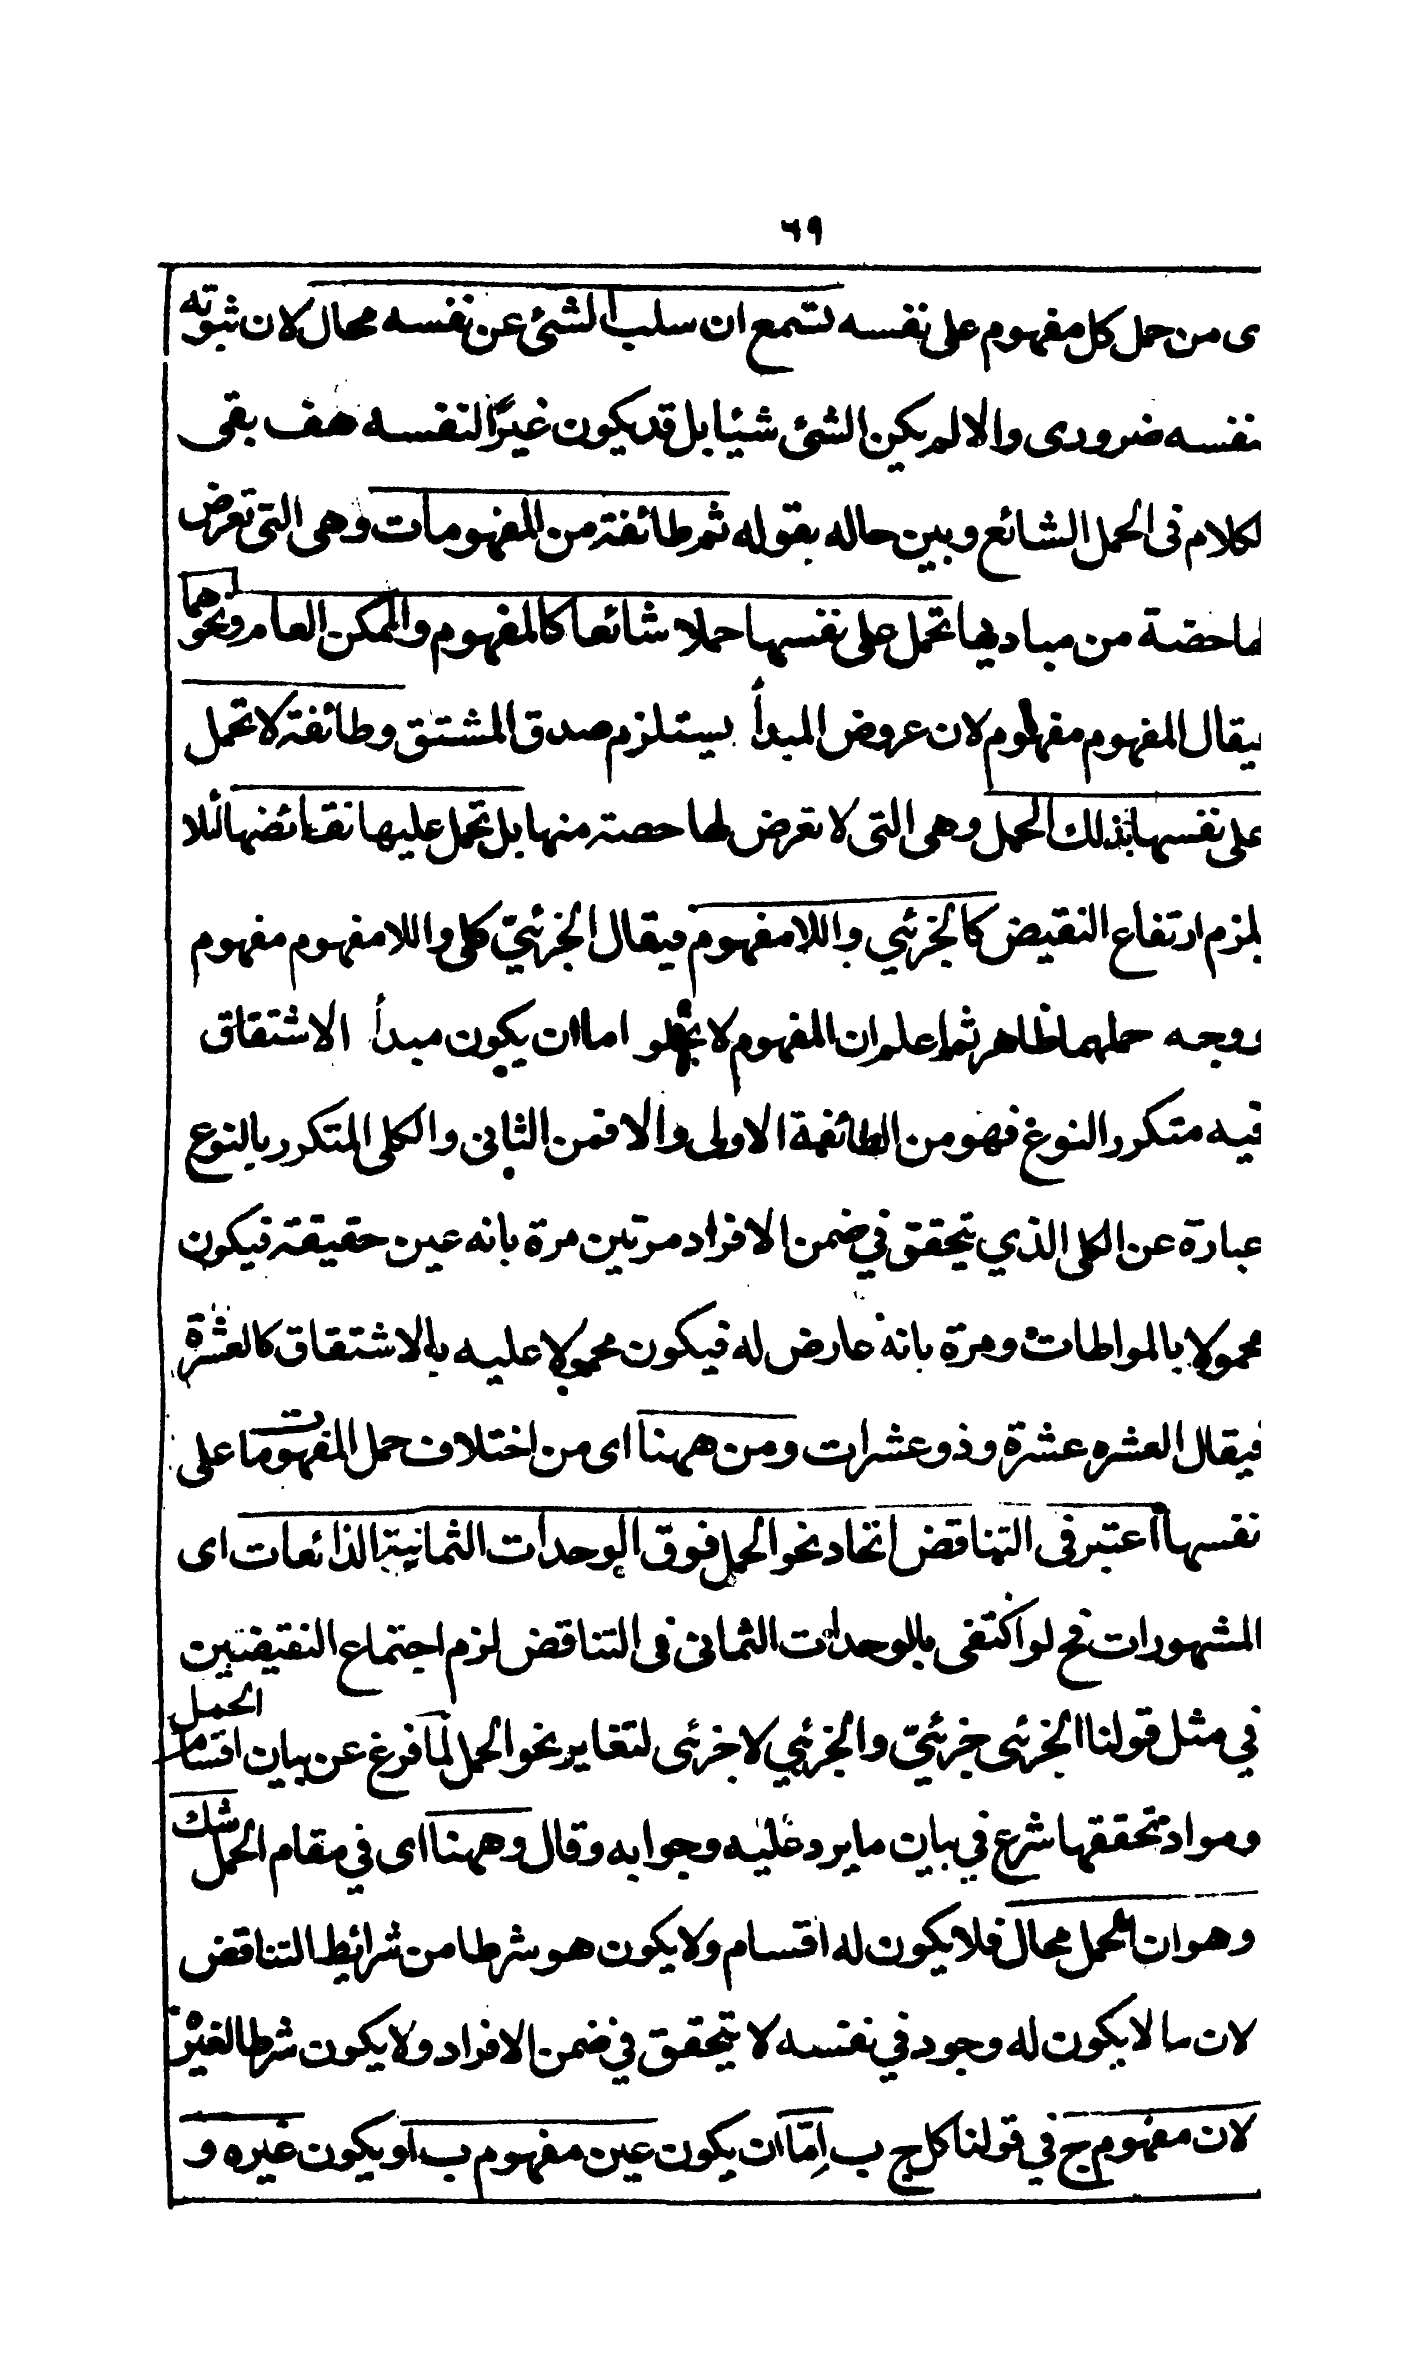 ٦٩
ى من حمل كل مفهوم على نفسه تسمع ان سلب الشئ عن نفسه محال لان ثبوته
نفسه ضرورى والا لم يكن الشئ شيئا بل قد يكون غيرًا لنفسه هف بقى
لكلام فى الحمل الشائع وبين حاله بقوله ثم طائفة من المفهومات وهى التى تعرض
لها حصة من مباديها تحمل على نفسها حملا شائعا كالمفهوم والممكن العام ونحوهما
فيقال المفهوم مفهوم لان عروض المبدأ يستلزم صدق المشتق وطائفة لا تحمل
على نفسها بذلك الحمل وهى التى لا تعرض لها حصة منها بل تحمل عليها نقائضها لئلا
يلزم ارتفاع النقيض كالجزئي واللا مفهوم فيقال الجزئيّ كلى واللا مفهوم مفهوم
ووجه حملهما ظاهر ثم اعلم ان المفهوم لا يخلو اما ان يكون مبدأ الاشتقاق
فيه متكرر النوع فهو من الطائفة الاولى والا فمن الثانى والكلى المتكرر بالنوع
عبارة عن الكلى الذي يتحقق في ضمن الافراد مرتين مرة بانه عين حقيقة فيكون
محمولا بالمواطات ومرة بانه عارض له فيكون محمولا عليه بالاشتقاق كالعشرة
فيقال العشره عشرة وذو عشرات ومن ههنا اى من اختلاف حمل المفهومات على
نفسها اعتبر فى التناقض اتحاد نحو الحمل فوق الوحدات الثمانية الذائعات اى
المشهورات فح لو اكتفى بالوحدات الثمانى فى التناقض لزم اجتماع النقيضين
في مثل قولنا الجزئى جزئيّ والجزئي لا جزئى لتغاير نحو الحمل لما فرغ عن بيان اقسام الحمل
ومواد تحققها شرع في بيان ما يرد عليه وجوابه وقال وههنا اى في مقام الحمل شك
وهو ان الحمل محال فلا يكون له اقسام ولا يكون هو شرطا من شرائط التناقض
لان ما لا يكون له وجود في نفسه لا يتحقق في ضمن الافراد ولا يكون شرطا لغيره
لان مفهوم ج في قولنا كل ج ب اِمّا ان يكون عين مفهوم ب او يكون غيره و